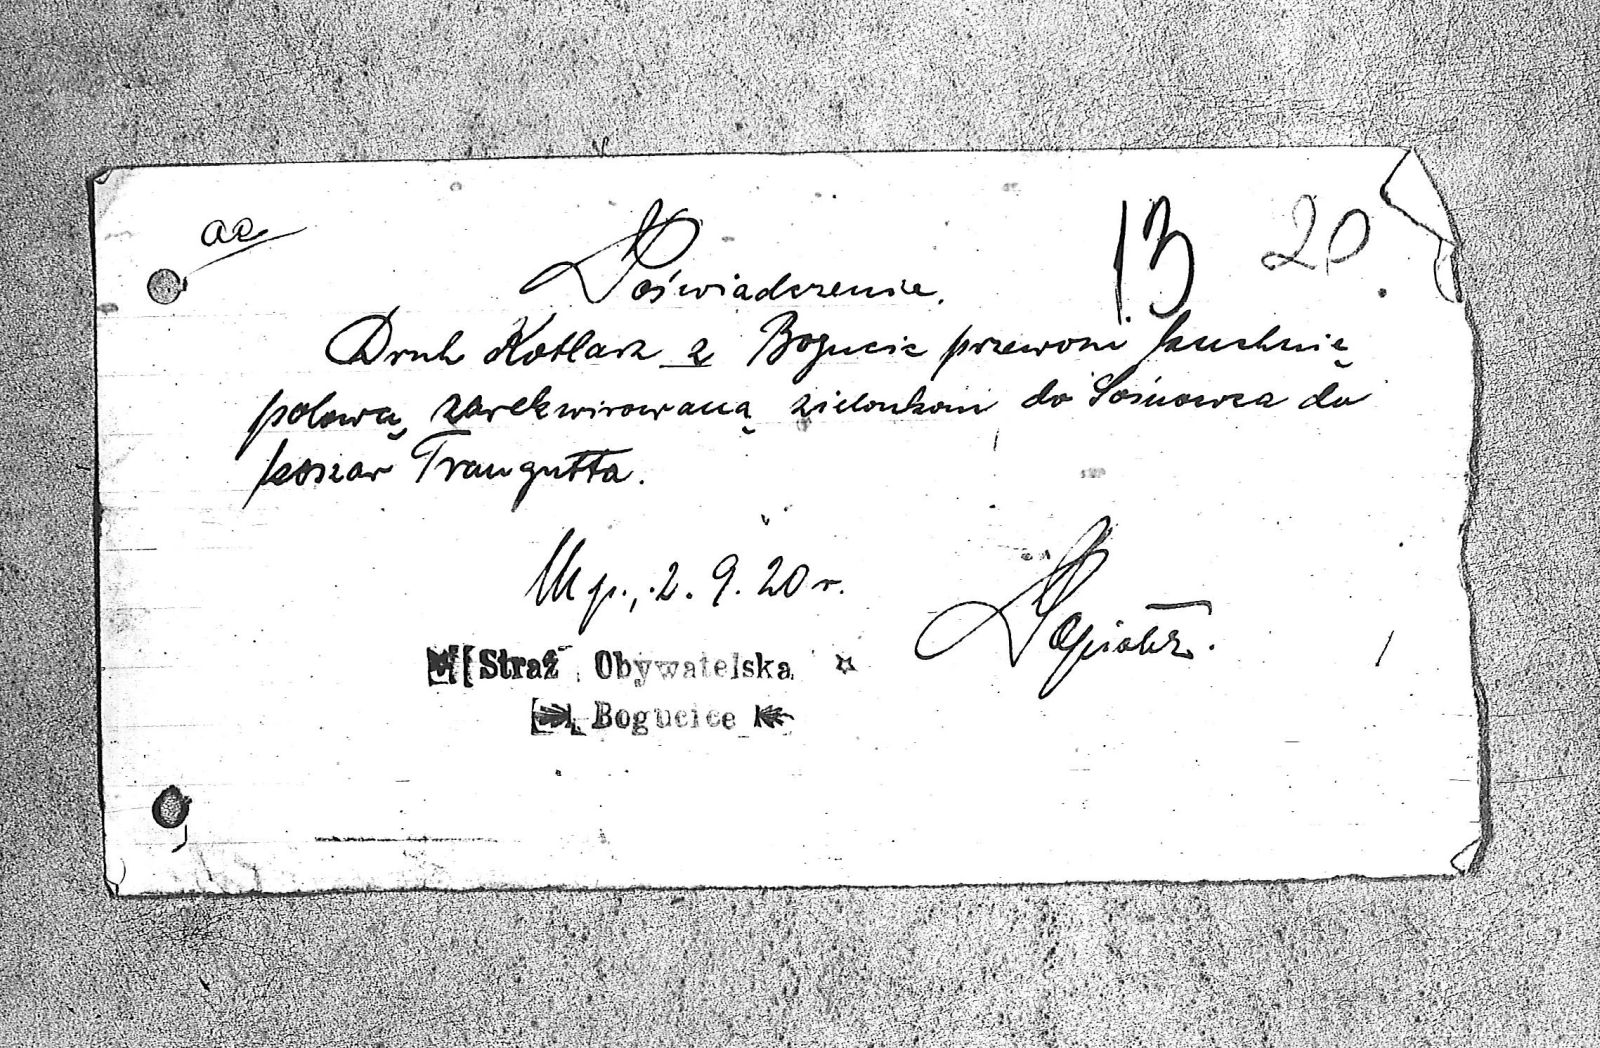 ae 13 20
Poświadczenie.
Druh Kotlarz z Bogucic przewozi kuchnię
polową, zarekwirowaną zielonkom do Sosnowca do
koszar Traugutta.
Mp., 2. 9. 20 r.
Straż Obywatelska
Bogucice